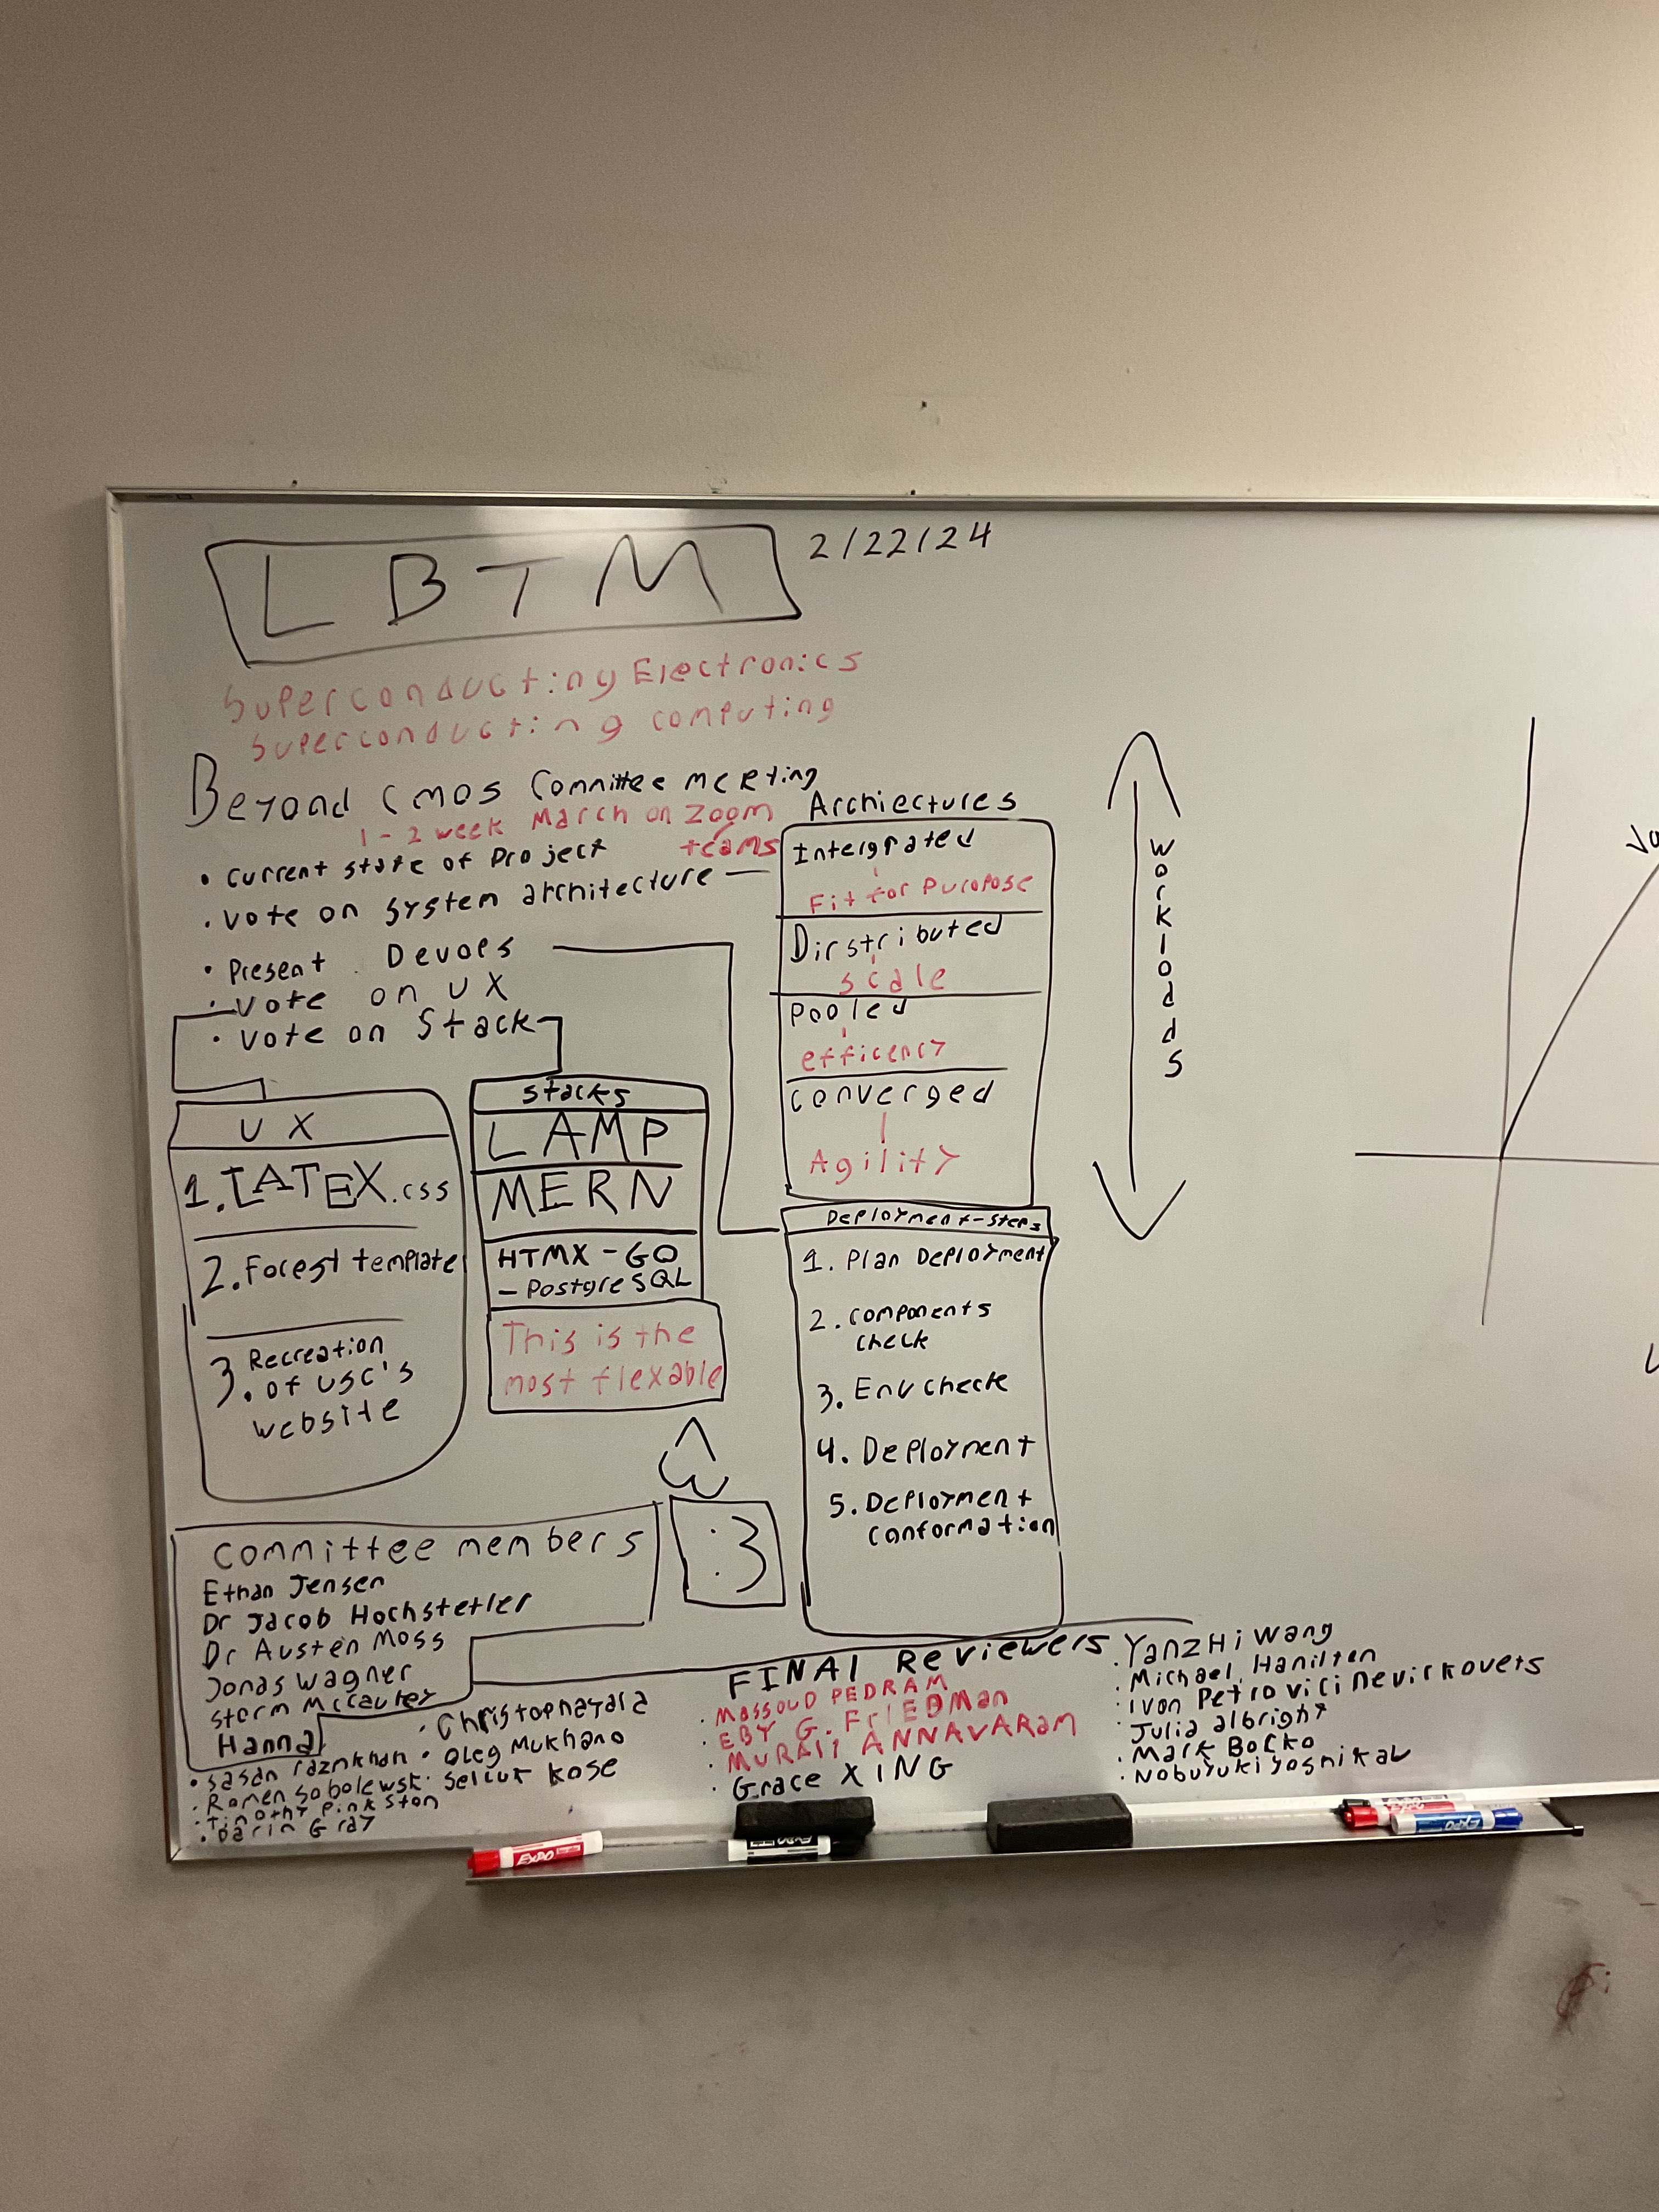 LBTM
2/22/24
Superconducting Electronics
Superconducting computing
Beyond CMOS Committee meeting
1-2 week March on Zoom
teams
• Current state of Project
• Vote on System architecture
• Present Devops
• Vote on UX
• Vote on Stack
Archiectures
Intergrated
Fit for Puropose
Dirstributed
scale
Pooled
efficency
converged
Agility
workloads
UX
1. LATEX.css
2. Forest template
3. Recreation
of USC's
website
Stacks
LAMP
MERN
HTMX-GO
-PostgreSQL
This is the
most flexable
Deployment-Steps
1. Plan Deployment
2. Components
check
3. Env check
4. Deployment
5. Deployment
conformation
:3
committee members
Ethan Jensen
Dr Jacob Hochstetler
Dr Austen Moss
Jonas Wagner
storm McCauley
Hanna
• Sasan razmkhah
• Romen Sobolewsk
• Timothy Pinkston
• Darin Gray
• Christophayala
• Oleg Mukhano
• Selcuk Kose
FINAL Reviewers
• MASSOUD PEDRAM
• EBY G. FRIEDMan
• MURALI ANNAVARAM
• Grace XING
• YanzHi Wang
• Michael Hamilten
• Ivan Petrovici Nevirkovets
• Julia albright
• Mark Bocko
• Nobuyuki
EXPO
EXPO
EXPO